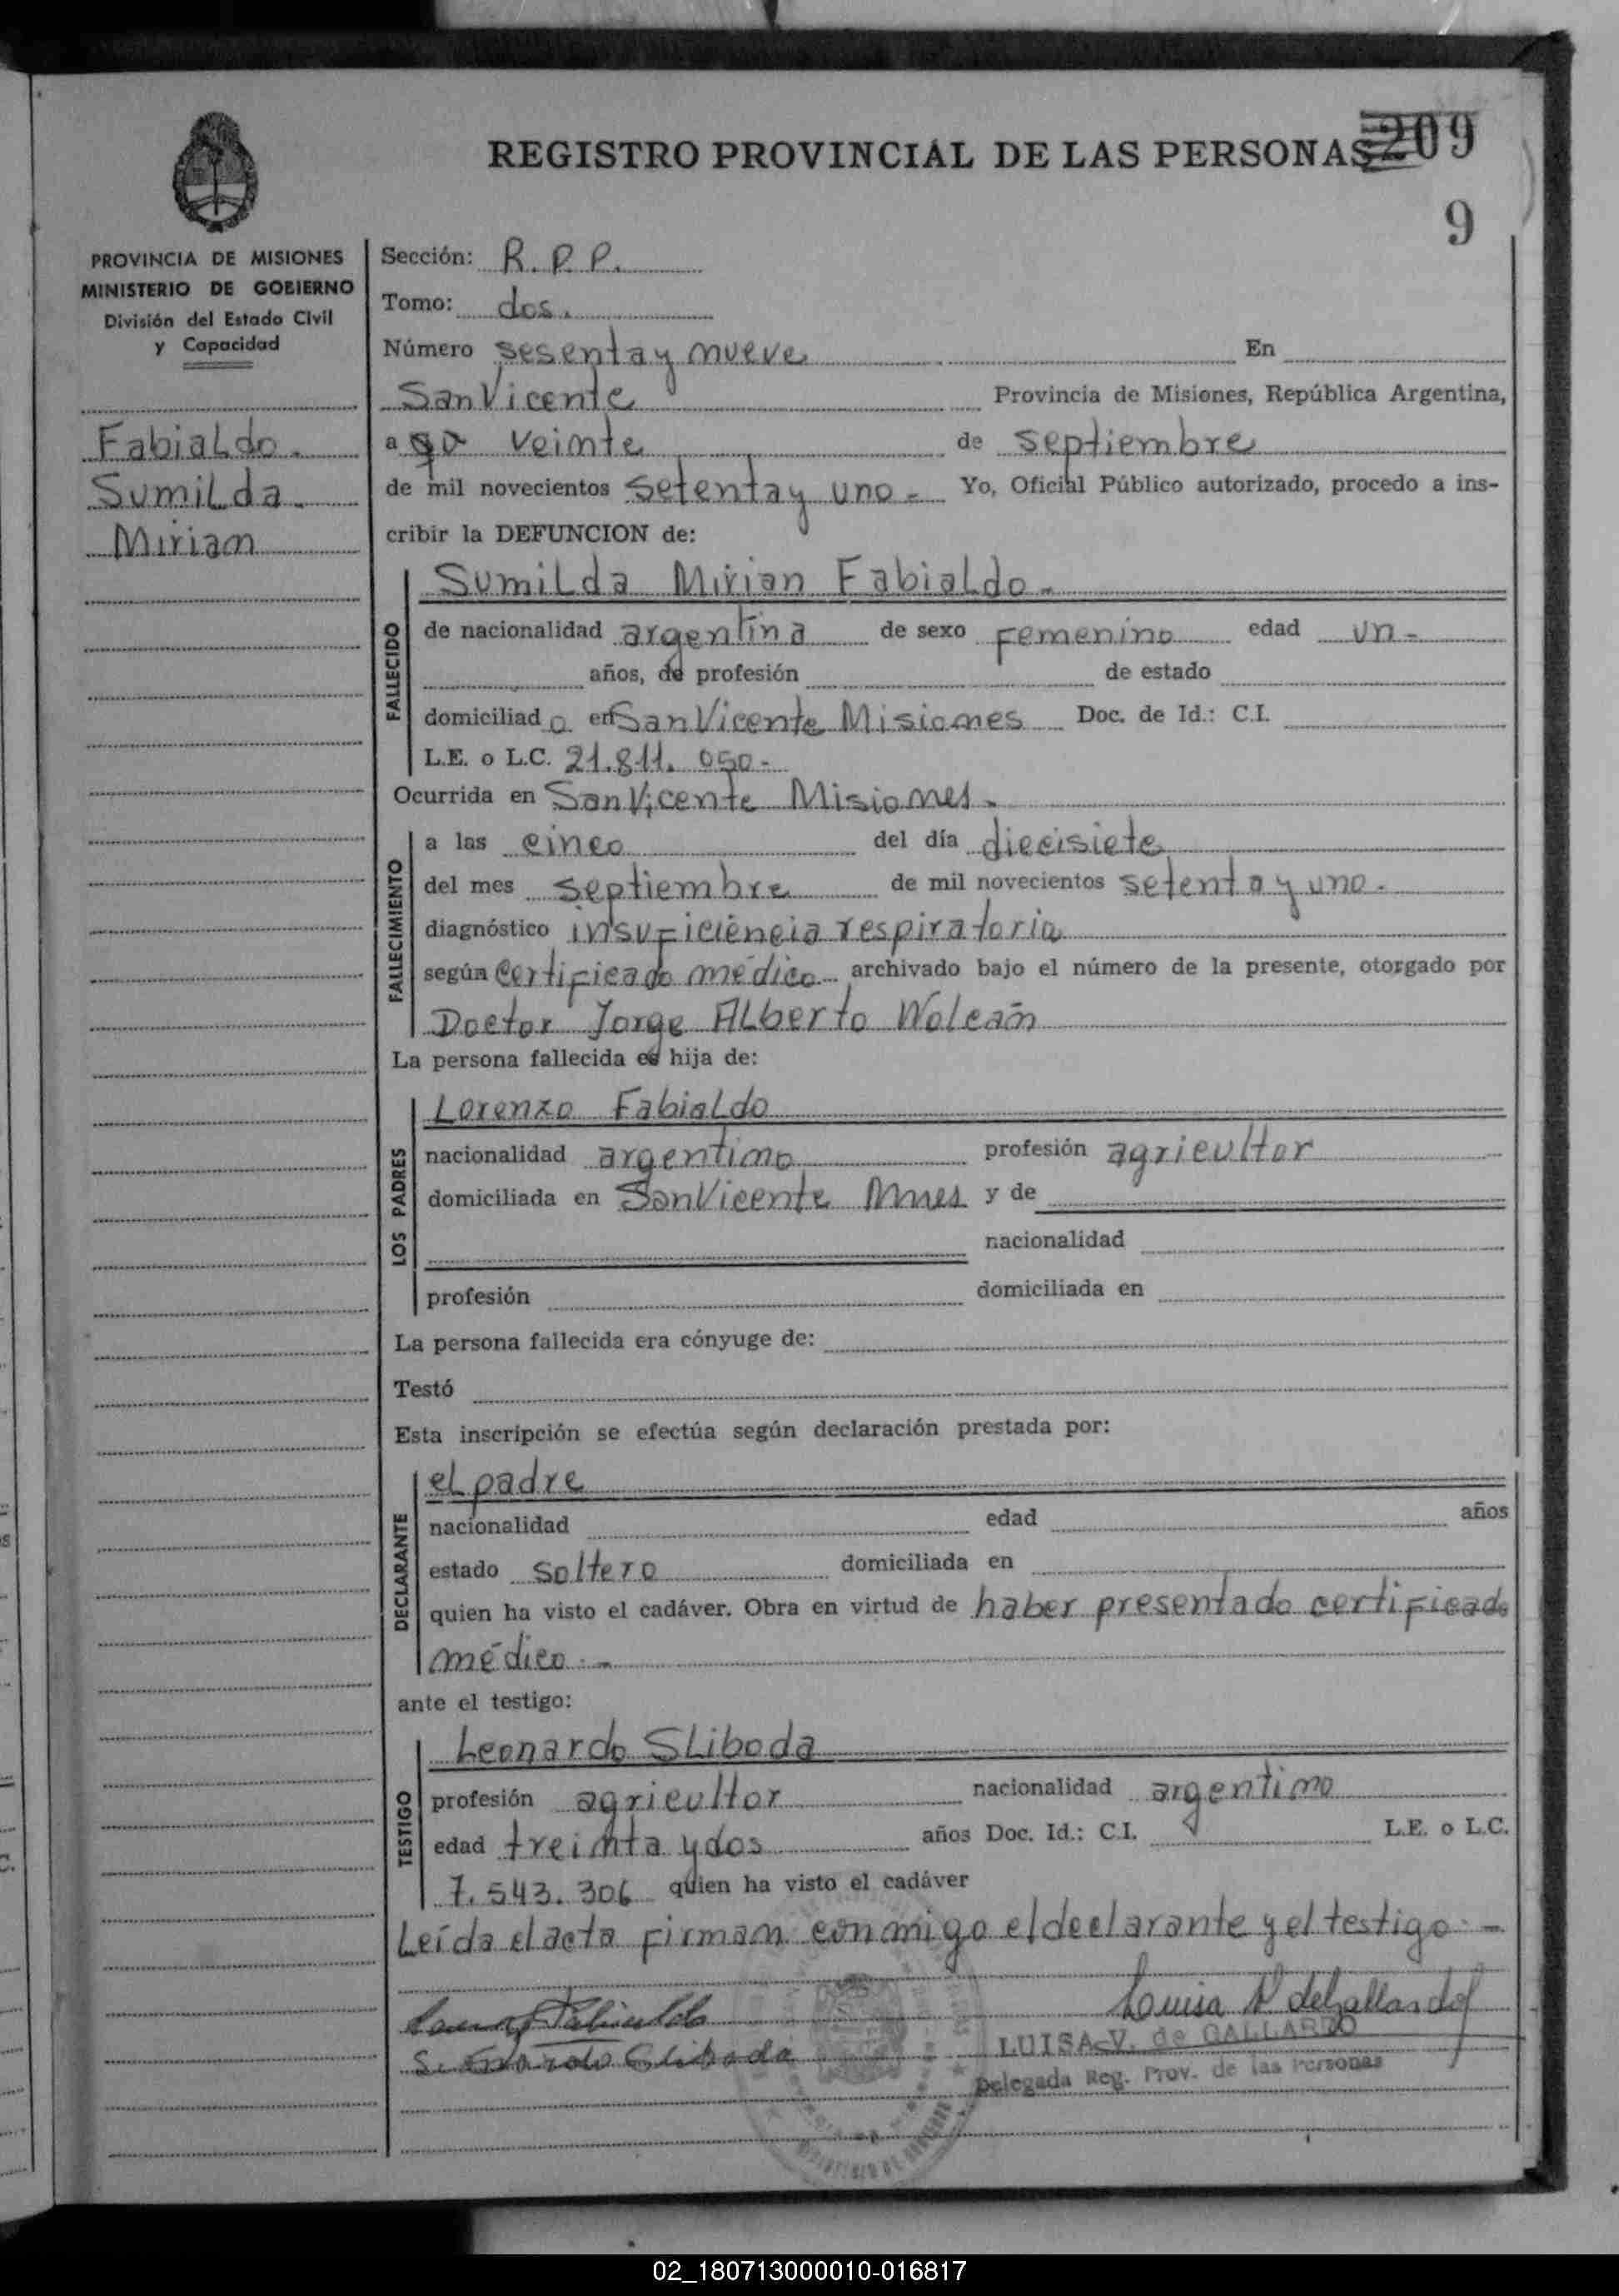 REGISTRO PROVINCIAL DE LAS PERSONAS 209
9
PROVINCIA DE MISIONES
MINISTERIO DE GOBIERNO
División del Estado Civil
y Capacidad
Fabialdo.
Sumilda.
Miriam
Sección: R.P.P.
Tomo: dos.
Número sesenta y nueve En
San Vicente Provincia de Misiones, República Argentina,
a veinte de septiembre
de mil novecientos setenta y uno.- Yo, Oficial Público autorizado, procedo a ins-
cribir la DEFUNCION de:
Sumilda Mirian Fabialdo.-
FALLECIDO
de nacionalidad argentina de sexo femenino edad un-
años, de profesión de estado
domiciliado en San Vicente Misiones Doc. de Id.: C.I.
L.E. o L.C. 21.811.050-
Ocurrida en San Vicente Misiones.
FALLECIMIENTO
a las cinco del día diecisiete
del mes septiembre de mil novecientos setenta y uno.
diagnóstico insuficiencia respiratoria
según certificado médico archivado bajo el número de la presente, otorgado por
Doctor Jorge Alberto Wolcan
La persona fallecida es hija de:
LOS PADRES
Lorenzo Fabialdo
nacionalidad argentino profesión agricultor
domiciliada en San Vicente Mnes y de
nacionalidad
profesión domiciliada en
La persona fallecida era cónyuge de:
Testó
Esta inscripción se efectúa según declaración prestada por:
DECLARANTE
el padre
nacionalidad edad años
estado soltero domiciliada en
quien ha visto el cadáver. Obra en virtud de haber presentado certificado
médico.-
ante el testigo:
TESTIGO
Leonardo Sliboda
profesión agricultor nacionalidad argentino
edad treinta y dos años Doc. Id.: C.I. L.E. o L.C.
7.543.306 quien ha visto el cadáver
Leída el acta firman conmigo el declarante y el testigo.-
Luisa V deGallardo
LUISA V. de GALLARDO
Delegada Reg. Prov. de las Personas
02_180713000010-016817